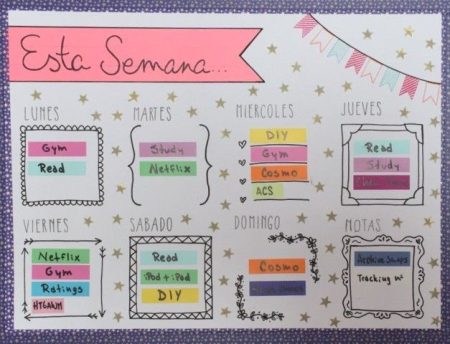 Esta Semana...
LUNES
Gym
Read
MARTES
Study
Netflix
MIERCOLES
DIY
Gym
Cosmo
ACS
JUEVES
Read
Study
VIERNES
Netflix
Gym
Ratings
SABADO
Read
iPod + iPad
DIY
DOMINGO
Cosmo
NOTAS
Archive Swaps
Tracking nº